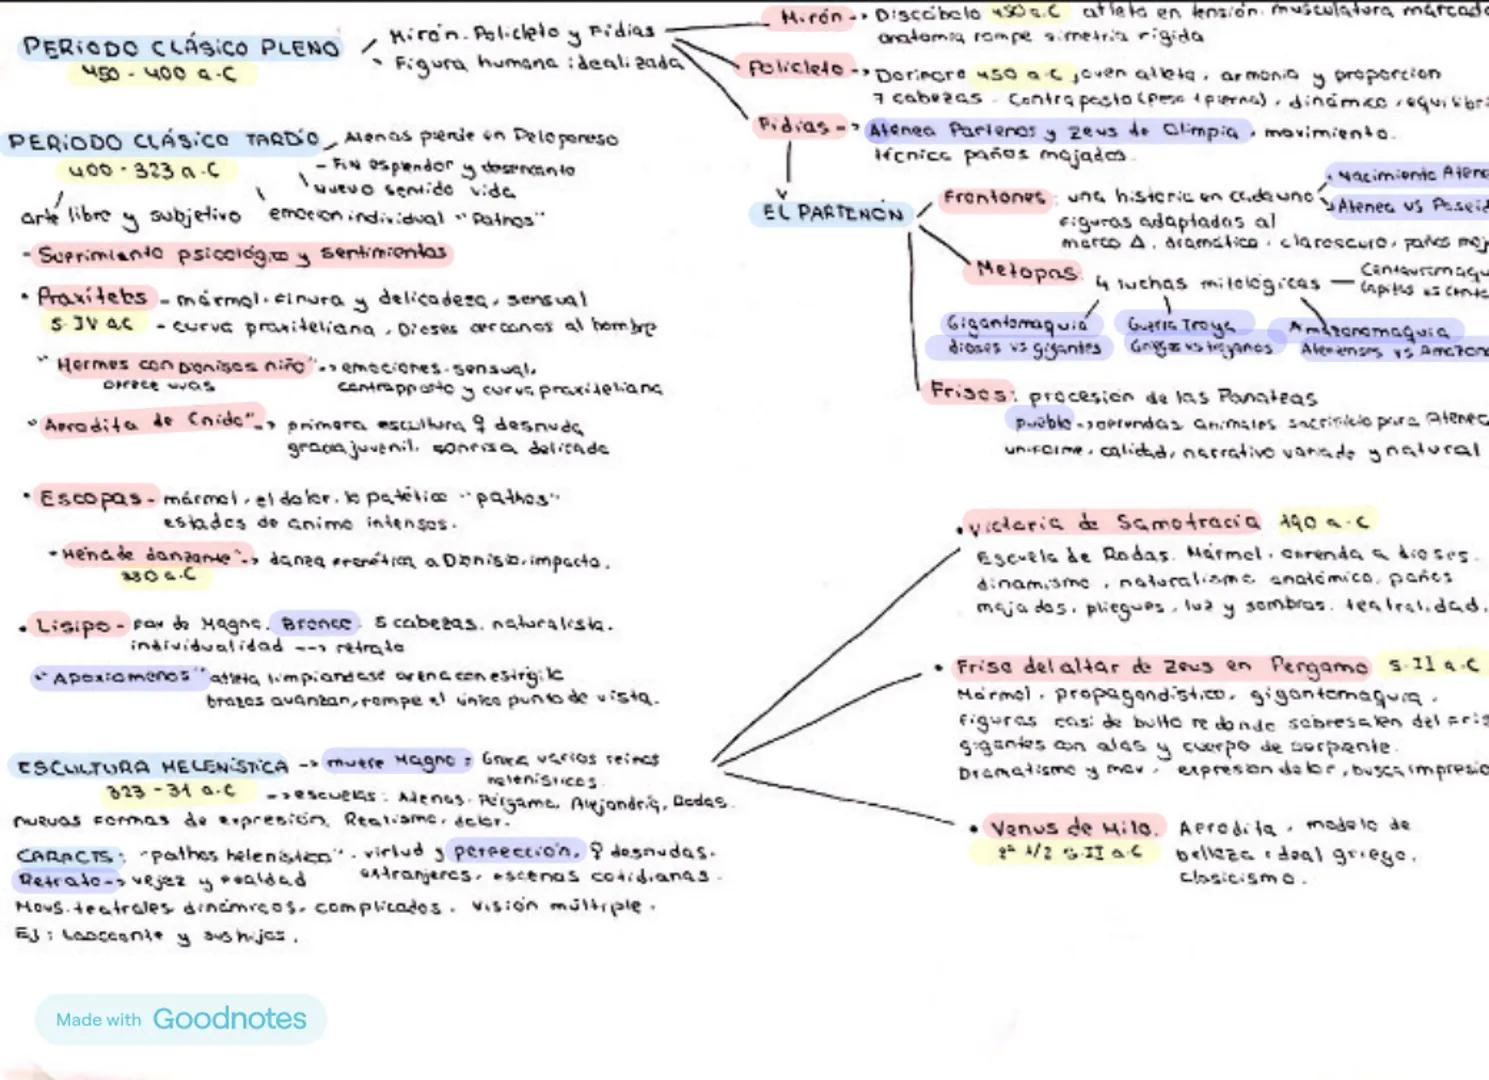 PERIODO CLÁSICO PLENO
450 - 400 a.C
Mirón. Policleto y Fidias
Figura humana idealizada
Mirón -> Discóbolo 450 a.C atleta en tensión. musculatura marcada
anatomía rompe simetría rígida
Policleto -> Doríforo 450 a.C joven atleta, armonía y proporción
7 cabezas. Contraposto (peso 1 pierna), dinámico, equilibri
Fidias -> Atenea Partenos y Zeus de Olimpia, movimiento.
técnica paños mojados.
EL PARTENÓN
Frontones: una historia en cada uno
Nacimiento Aten
Atenea vs Poseid
figuras adaptadas al
marco Δ, dramático, claroscuro, paños moj
Metopas: 4 luchas mitológicas
Centauromaqu
lapitas vs cent
Gigantomaquia
dioses vs gigantes
Guerra Troya
Griegos vs troyanos
Amazonomaquia
Atenienses vs Amazon
Frisos: procesión de las Panateas
pueblo -> ofrendas animales sacrificio para Atenea
uniforme, calidad, narrativo variado y natural
PERIODO CLÁSICO TARDÍO
400 - 323 a.C
Atenas pierde en Peloponeso
- Fin esplendor y desencanto
nuevo sentido vida
arte libre y subjetivo
emoción individual "Pathos"
- Sufrimiento psicológico y sentimientos
• Praxíteles - mármol. finura y delicadeza, sensual
S. IV a.C - curva praxiteliana, Dioses cercanos al hombre
"Hermes con Dionisos niño" -> emociones. sensual,
ofrece uvas contrapposto y curva praxiteliana
"Afrodita de Cnido" -> primera escultura ♀ desnuda
gracia juvenil. sonrisa delicada
• Escopas - mármol, el dolor, lo patético "pathos"
estados de ánimo intensos.
"Ménade danzante" -> danza frenética a Dioniso. impacto.
330 a.C
• Lisipo - fav de Magno. Bronce. 8 cabezas. naturalista.
individualidad --> retrato
"Apoxiomenos" atleta limpiandose arena con estrígile
brazos avanzan, rompe el único punto de vista.
ESCULTURA HELENÍSTICA -> muere Magno: Grecia varios reinos
helenísticos.
323 - 31 a.C
-> escuelas: Atenas. Pérgamo, Alejandría, Rodas.
nuevas formas de expresión. Realismo, dolor.
CARACTS: "pathos helenístico". virtud y perfección, ♀ desnudas.
Retrato -> vejez y fealdad
extranjeros, escenas cotidianas.
Movs. teatrales dinámicos, complicados. visión múltiple.
EJ: Laocoonte y sus hijos.
• Victoria de Samotracia 190 a.C
Escuela de Rodas. Mármol. ofrenda a dioses.
dinamismo, naturalismo anatómico, paños
mojados, pliegues, luz y sombras. teatralidad.
• Friso del altar de Zeus en Pergamo S. II a.C
Mármol. propagandístico, gigantomaquia.
Figuras casi de bulto redondo sobresalen del fris
gigantes con alas y cuerpo de serpiente.
Dramatismo y mov, expresión dolor, busca impresio
• Venus de Milo. Afrodita, modelo de
2ª 1/2 S.II a.C belleza ideal griego.
clasicismo.
Made with Goodnotes